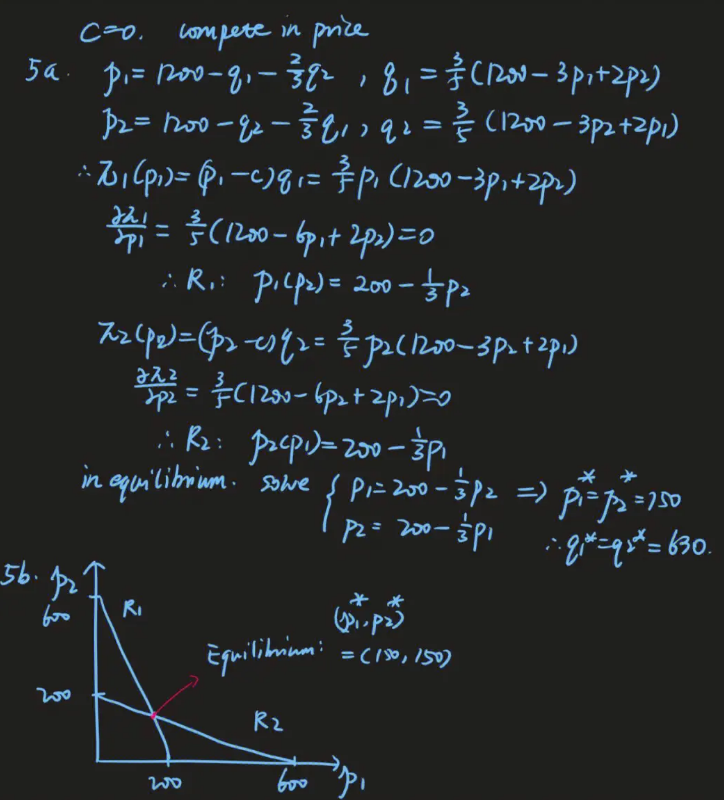 C=0. compete in price
5a. p₁=1200-q₁-⅔q₂, q₁=⅗(1200-3p₁+2p₂)
p₂=1200-q₂-⅔q₁, q₂=⅗(1200-3p₂+2p₁)
∴π₁(p₁)=(p₁-c)q₁=⅗p₁(1200-3p₁+2p₂)
∂π₁/∂p₁=⅗(1200-6p₁+2p₂)=0
∴R₁: p₁(p₂)=200-⅓p₂
π₂(p₂)=(p₂-c)q₂=⅗p₂(1200-3p₂+2p₁)
∂π₂/∂p₂=⅗(1200-6p₂+2p₁)=0
∴R₂: p₂(p₁)=200-⅓p₁
in equilibrium. solve { p₁=200-⅓p₂ => p₁*=p₂*=150
p₂=200-⅓p₁ ∴q₁*=q₂*=630.
5b. p₂
600 R₁ (p₁*,p₂*)
Equilibrium: =(150,150)
200 R₂
200 600 p₁